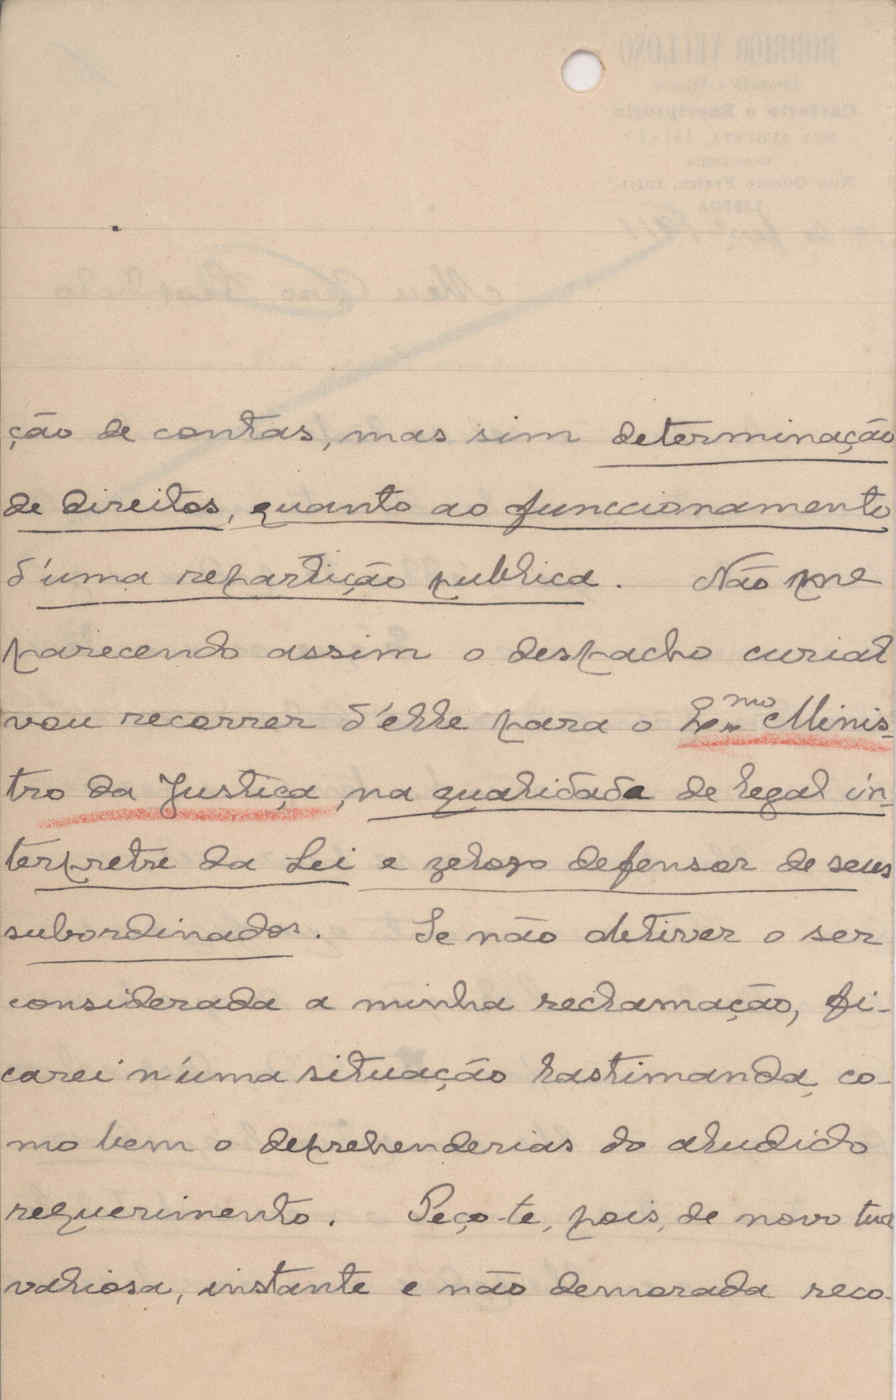 ção de contas, mas sim determinação
de direitos, quanto ao funccionamento
d'uma repartição publica. Não me
parecendo assim o despacho curial
vou recorrer d'elle para o Exmo Minis-
tro da Justiça, na qualidade de legal in-
terpretre da Lei e zeloso defensor de seus
subordinados. Se não obtiver o ser
considerada a minha reclamação, fi-
carei n'uma situação lastimanda, co-
mo bem o deprehenderias do aludido
requerimento. Peço-te, pois, de novo tua
valiosa, instante e não demorada reco-